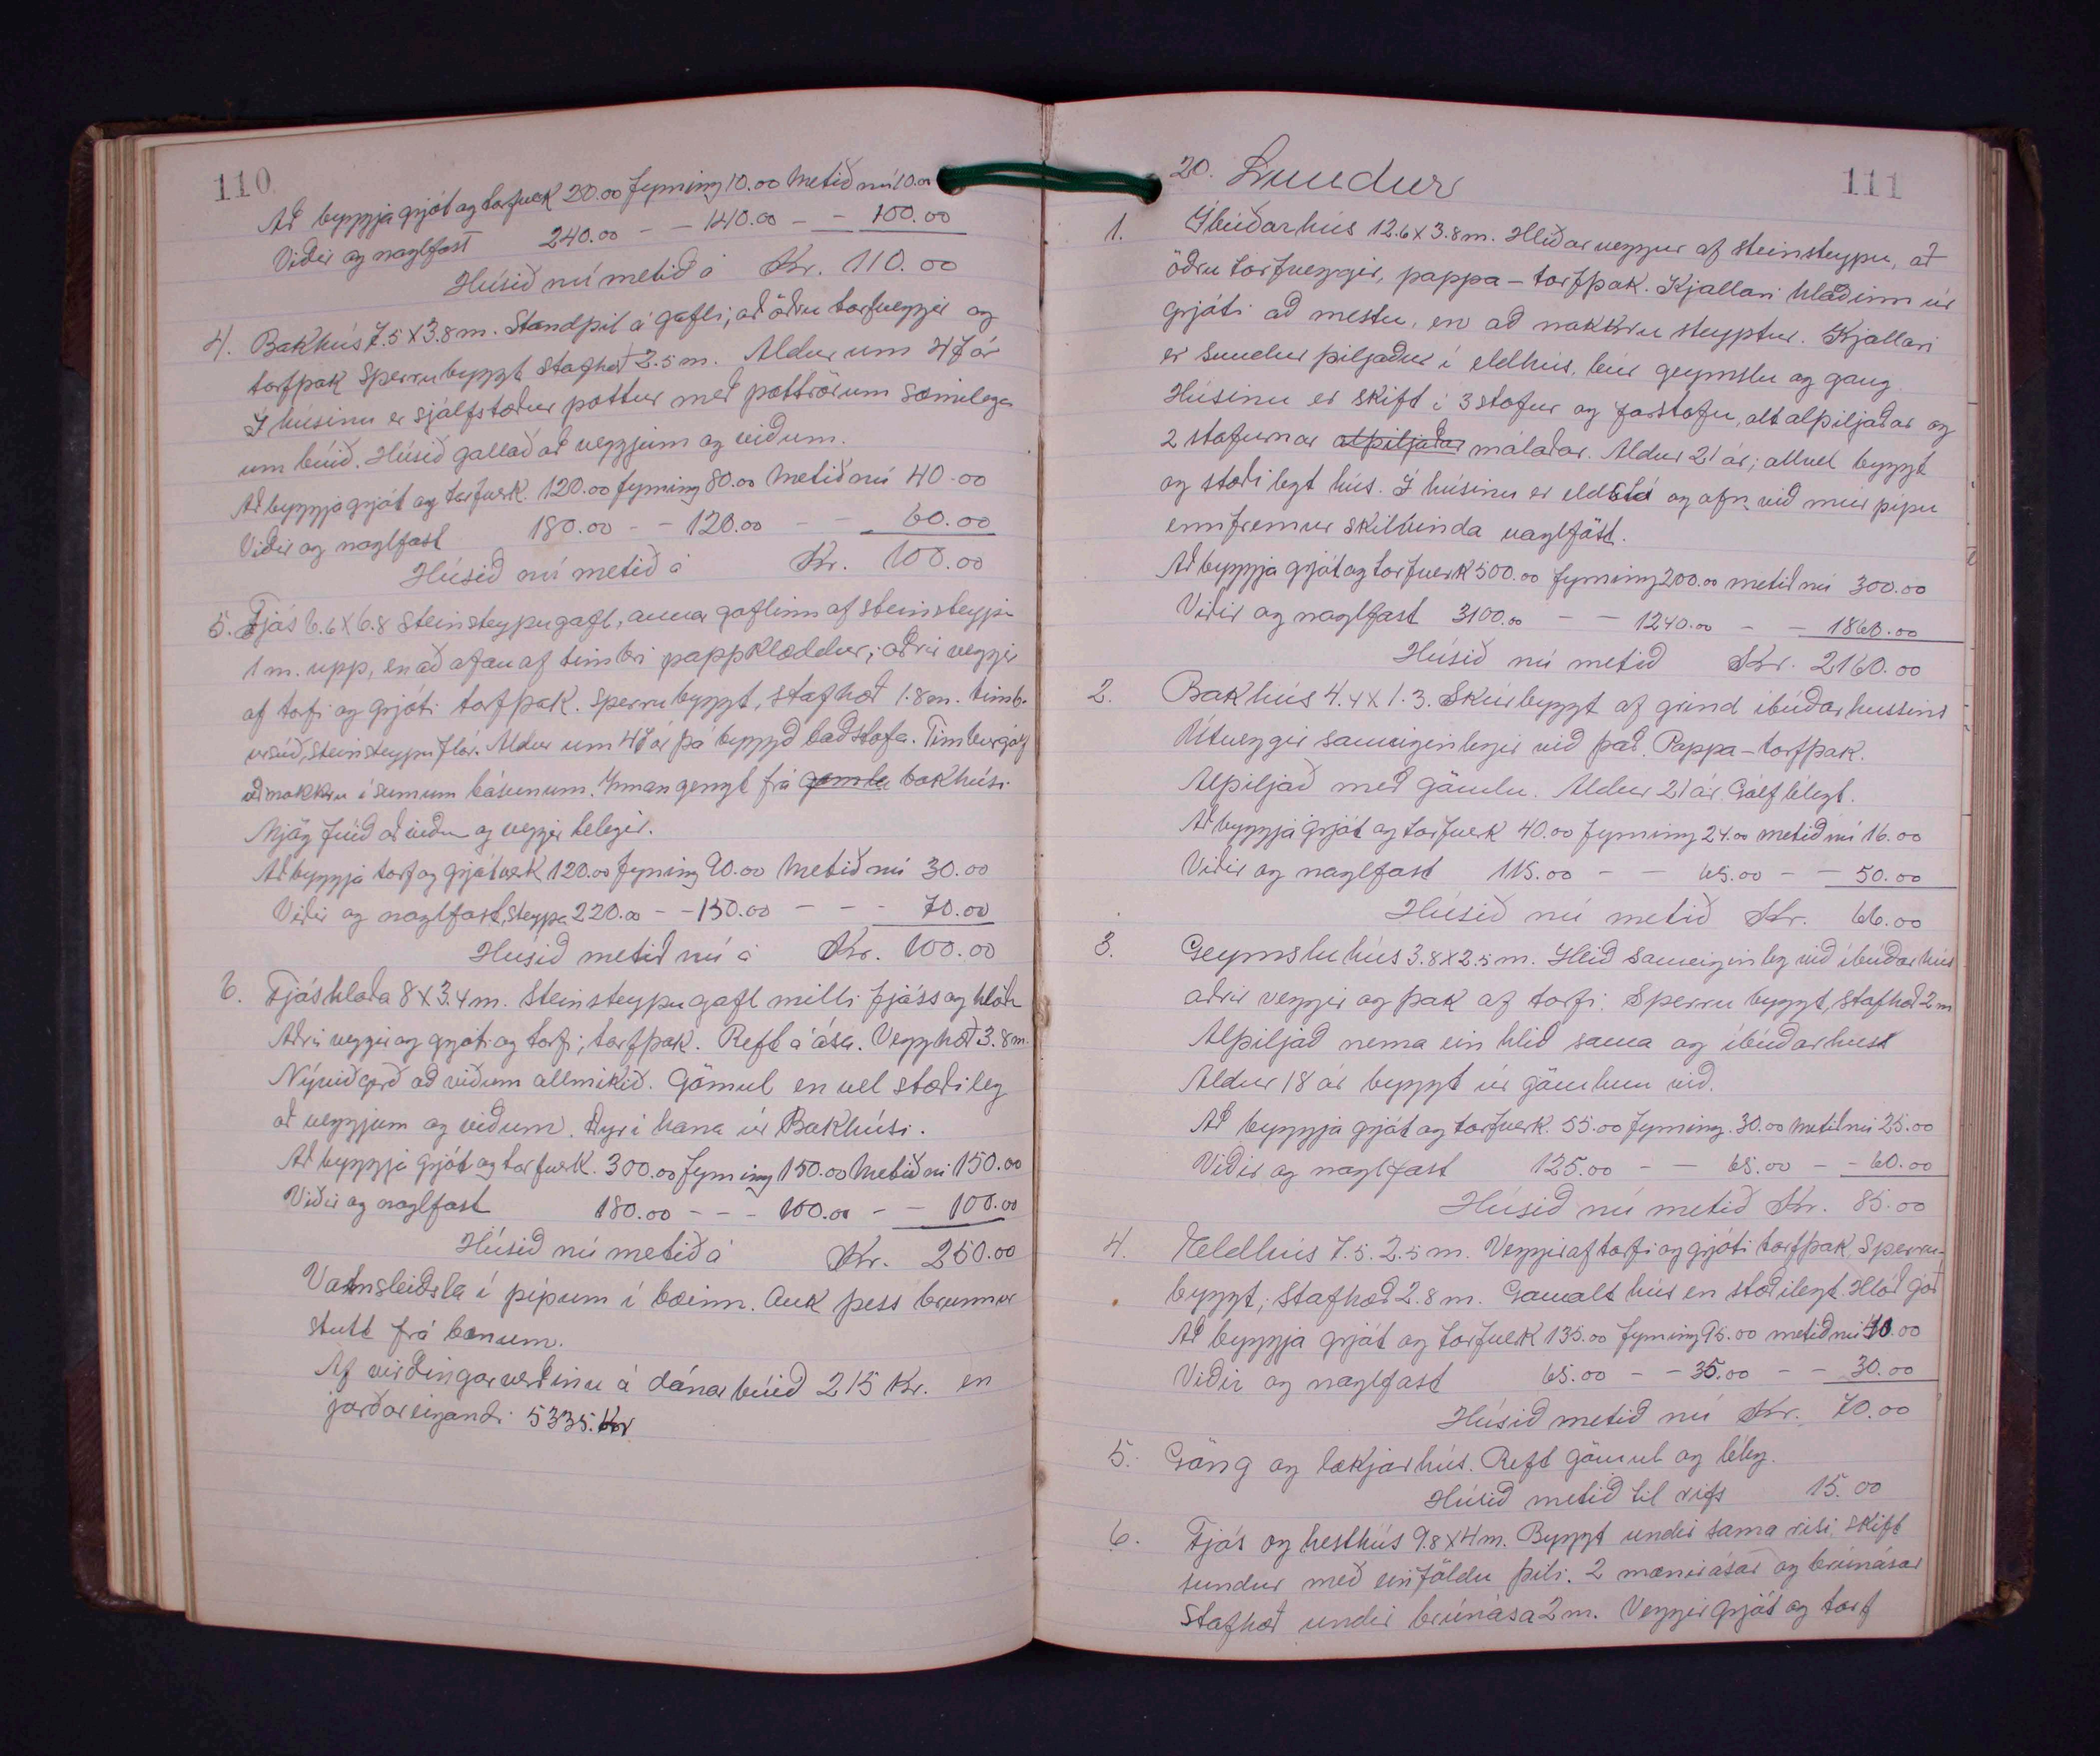 110
Að byggja grjót og torfverk 20.00 fyrning 10.00 Metið nú 10.00
Viðir og naglfast 240.00 - - 140.00 - - 100.00
Húsið nú metið á Kr. 110.00
4. Bakhús 7.5 x 3.8 m. Standþil á gafli; að öðru torfveggir og
torfþak sperrubyggt stafhæð 2.5 m. Aldur um 47 ár
Í húsinu er sjálfstæður pottur með pottrörum sæmilega
um búið. Húsið gallað að veggjum og viðum.
Að byggja grjót og torfverk. 120.00 fyrning 80.00 Metið nú 40.00
Viðir og naglfast 180.00 - - 120.00 - - 60.00
Húsið nú metið á Kr. 100.00
5. Fjós 6.6 x 6.8 Steinsteypugafl, annar gaflinn af steinsteypu
1 m. upp, en að ofan af timbri pappklæddur; aðrir veggir
af tofi og grjóti torfþak. Sperrubyggt, stafhæð 1.8 m. timb-
ursúð, steinsteypuflór. Aldur um 47 ár þá byggð baðstofa. Timburgólf
að nokkru í sumum básunum. Innangengt frá gamla bakhúsi.
Mjög fúið að viðum og veggir lelegir.
Að byggja torf og grjótverk 120.00 fyrning 90.00 Metið nú 30.00
Viðir og naglfast, steypa 220.00 - - 150.00 - - - 70.00
Húsið metið nú á Kr. 100.00
6. Fjóshlaða 8 x 3.4 m. Steinsteypugafl milli fjóss og hlöðu
Aðrir veggir og grjóti og torfi; torfþak. Reft á ása. Vegghæð 3.8 m.
Nýviðgerð að viðum allmikið. Gömul en vel stæðileg
að veggjum og viðum. Dyr í hana úr Bakhúsi.
Að byggja grjót og torfverk. 300.00 fyrning 150.00 Metið nú 150.00
Viðir og naglfast 180.00 - - - 100.00 - - 100.00
Húsið nú metið á Kr. 250.00
Vatnsleiðsla í pípum í bæinn. Auk þess brunnur
stutt frá bænum.
Af virðingarverðinu á dánarbúið 215 Kr. en
jarðareigandi 5335. Kr
20. Lundur
111
1. Íbúðarhús 12.6 x 3.8 m. Hliðarveggur af steinsteypu, að
öðru torfveggir, pappa-torfþak. Kjallari hlaðinn úr
grjóti að mestu, en að nokkru steyptur. Kjallari
er sundur þiljaður í eldhús, búr geymslu og gang
Húsinu er skift í 3 stofur og forstofu, alt alþiljaðar og
2 stofurnar alþiljaðar málaðar. Aldur 21 ár; allvel byggt
og stæðilegt hús. Í húsinu er eldstó og ofn við múrpípu
ennfremur skilvinda naglföst.
Að byggja grjót og torfverk 500.00 fyrning 200.00 metið nú 300.00
Viðir og naglfast 3100.00 - - 1240.00 - - 1860.00
Húsið nú metið Kr. 2160.00
2. Bakhús 4.4 x 1.3. Skúrbyggt af grind íbúðarhussins
Útveggir sameiginlegir við það. Pappa-torfþak.
Alþiljað með gömlu. Aldur 21 ár. Gólf lélegt.
Að byggja grjót og torfverk 40.00 fyrning 24.00 metið nú 16.00
Viðir og naglfast 115.00 - - 65.00 - - 50.00
Húsið nú metið Kr. 66.00
3. Geymsluhús 3.8 x 2.5 m. Hlið sameiginleg við íbúðarhús
aðrir veggir og þak af torfi. Sperrubyggt, stafhæð 2 m
Alþiljað nema ein hlið sama og íbúðarhuss
Aldur 18 ár byggt úr gömlum við.
Að byggja grjót og torfverk. 55.00 fyrning. 30.00 metið nú 25.00
Viðir og naglfast 125.00 - - 65.00 - - 60.00
Húsið nú metið Kr. 85.00
4. Eldhús 7.5. 2.5 m. Veggir af torfi og grjóti torfþak, Sperru-
byggt; stafhæð 2.8 m. Gamalt hús en stæðilegt. Hlóð góð
Að byggja grjót og torfverk 135.00 fyrning 95.00 metið nú 40.00
Viðir og naglfast 65.00 - - 35.00 - - 30.00
Húsið metið nú Kr. 70.00
5. Göng og lækjarhús. Reft gömul og léleg.
Húsið metið til rifs 15.00
6. Fjós og hesthús 9.8 x 4 m. Byggt undir sama risi, skift
sundur með einföldu þili. 2 mænirásar og brúnásar
Stafhæð undir brúnása 2 m. Veggir grjót og torf